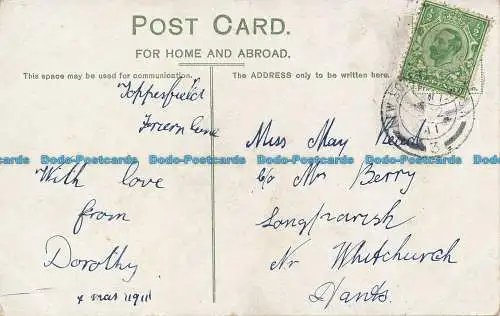 POST CARD.
FOR HOME AND ABROAD.
This space may be used for communication.
The ADDRESS only to be written here.
Topperfield
With love
from
Dorothy
Xmas 1911
Miss May
c/o Mrs Berry
Longparish
Nr Whitchurch
Hants.
Bodo-Postcards Bodo-Postcards Bodo-Postcards Bodo-Postcards